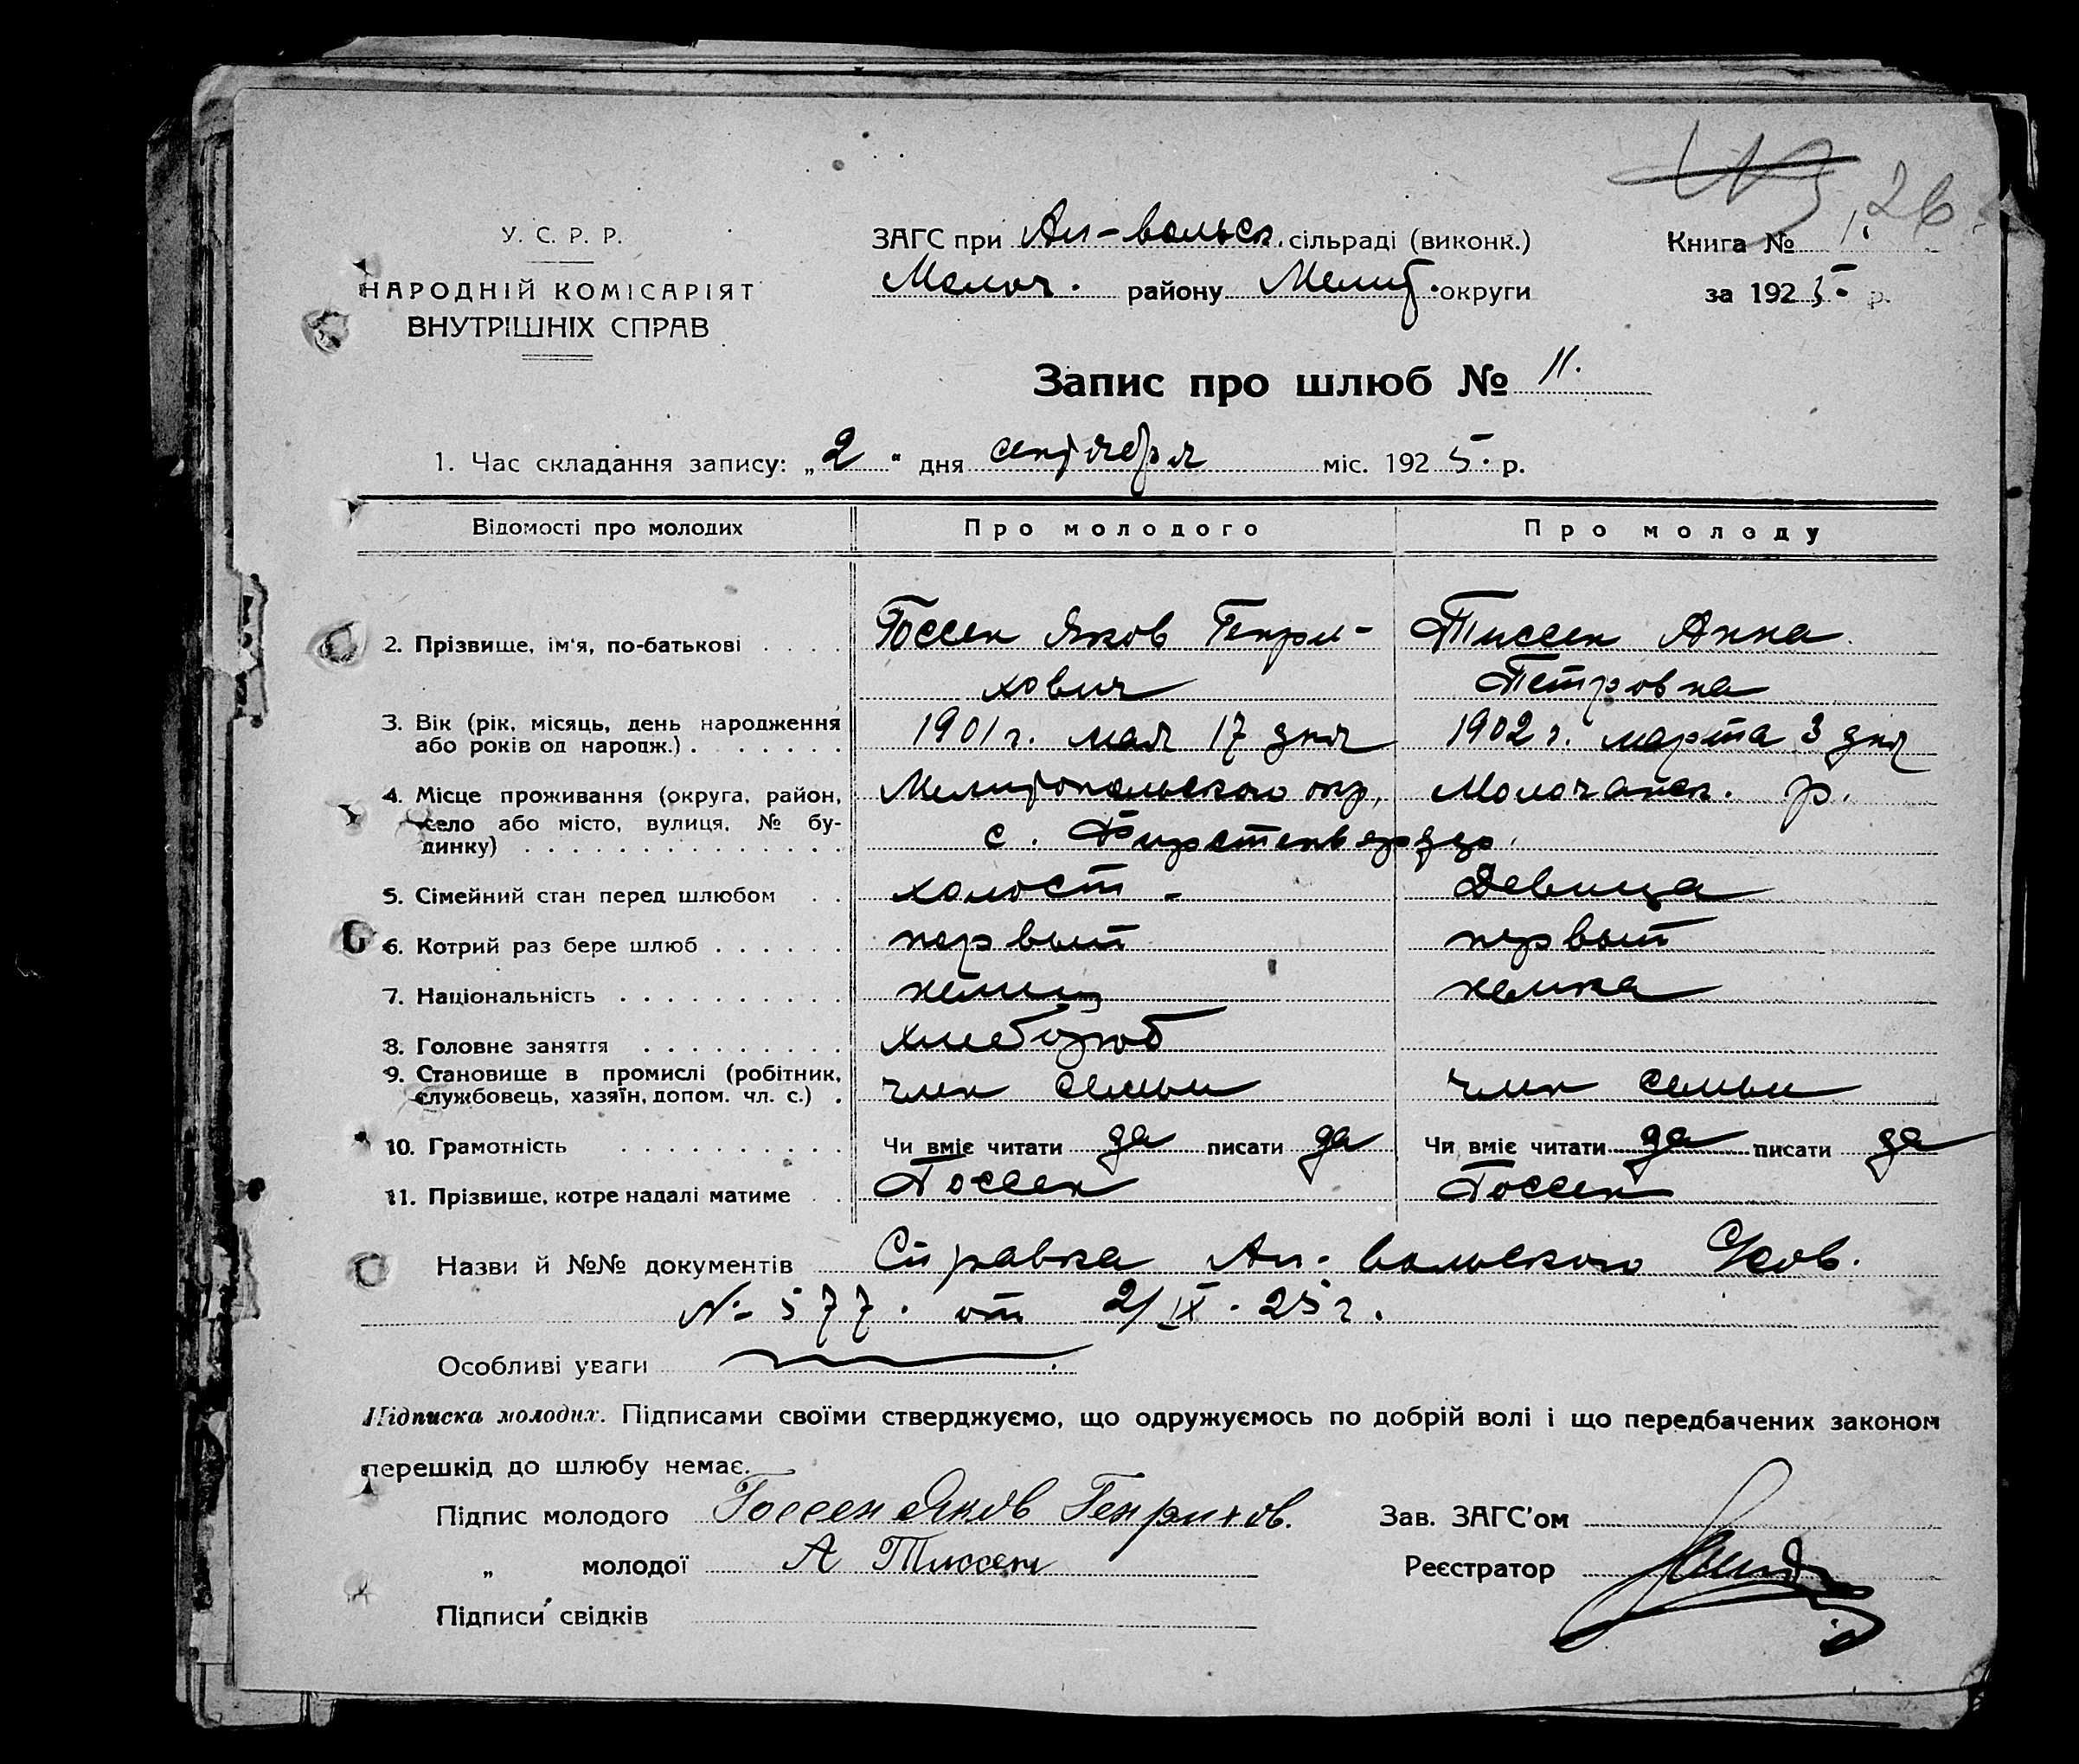 126
У. С. Р. Р.
НАРОДНІЙ КОМІСАРІЯТ
ВНУТРІШНІХ СПРАВ
ЗАГС при Ал-вольск. сільраді (виконк.)
Молоч. району Мелит. округи
Книга № 1.
за 1925 р.
Запис про шлюб № 11.
1. Час складання запису: „2“ дня сентября міс. 1925. р.
Відомості про молодих
Про молодого
Про молоду
2. Прізвище, ім'я, по-батькові . . . .
Госсен Яков Генри-
хович
Тиссен Анна
Петровна
3. Вік (рік, місяць, день народження
або років од народж.) . . . . . . .
1901 г. мая 17 дня
1902 г. марта 3 дня
4. Місце проживання (округа, район,
село або місто, вулиця, № бу-
динку) . . . . . . . . . . . . . .
Мелитопольского окр. Молочанск. р.
с. Фирстенвердер.
5. Сімейний стан перед шлюбом . .
холост -
Девица
6. Котрий раз бере шлюб . . . . . .
первый
первый
7. Національність . . . . . . . . . .
немец
немка
8. Головне заняття . . . . . . . . .
хлебороб
9. Становище в промислі (робітник,
службовець, хазяїн, допом. чл. с.) .
член семьи
член семьи
10. Грамотність . . . . . . . . . .
Чи вміє читати да писати да
Чи вміє читати да писати да
11. Прізвище, котре надалі матиме . .
Госсен
Госсен
Назви й №№ документів Справка Ал-вольского Сов.
№ 577. от 2/IX. 25 г.
Особливі уваги
Підписка молодих. Підписами своїми стверджуємо, що одружуємось по добрій волі і що передбачених законом
перешкід до шлюбу немає.
Підпис молодого Госсен Яков Генрихов.
„ молодої А Тиссен
Підписи свідків
Зав. ЗАГС'ом
Реєстратор